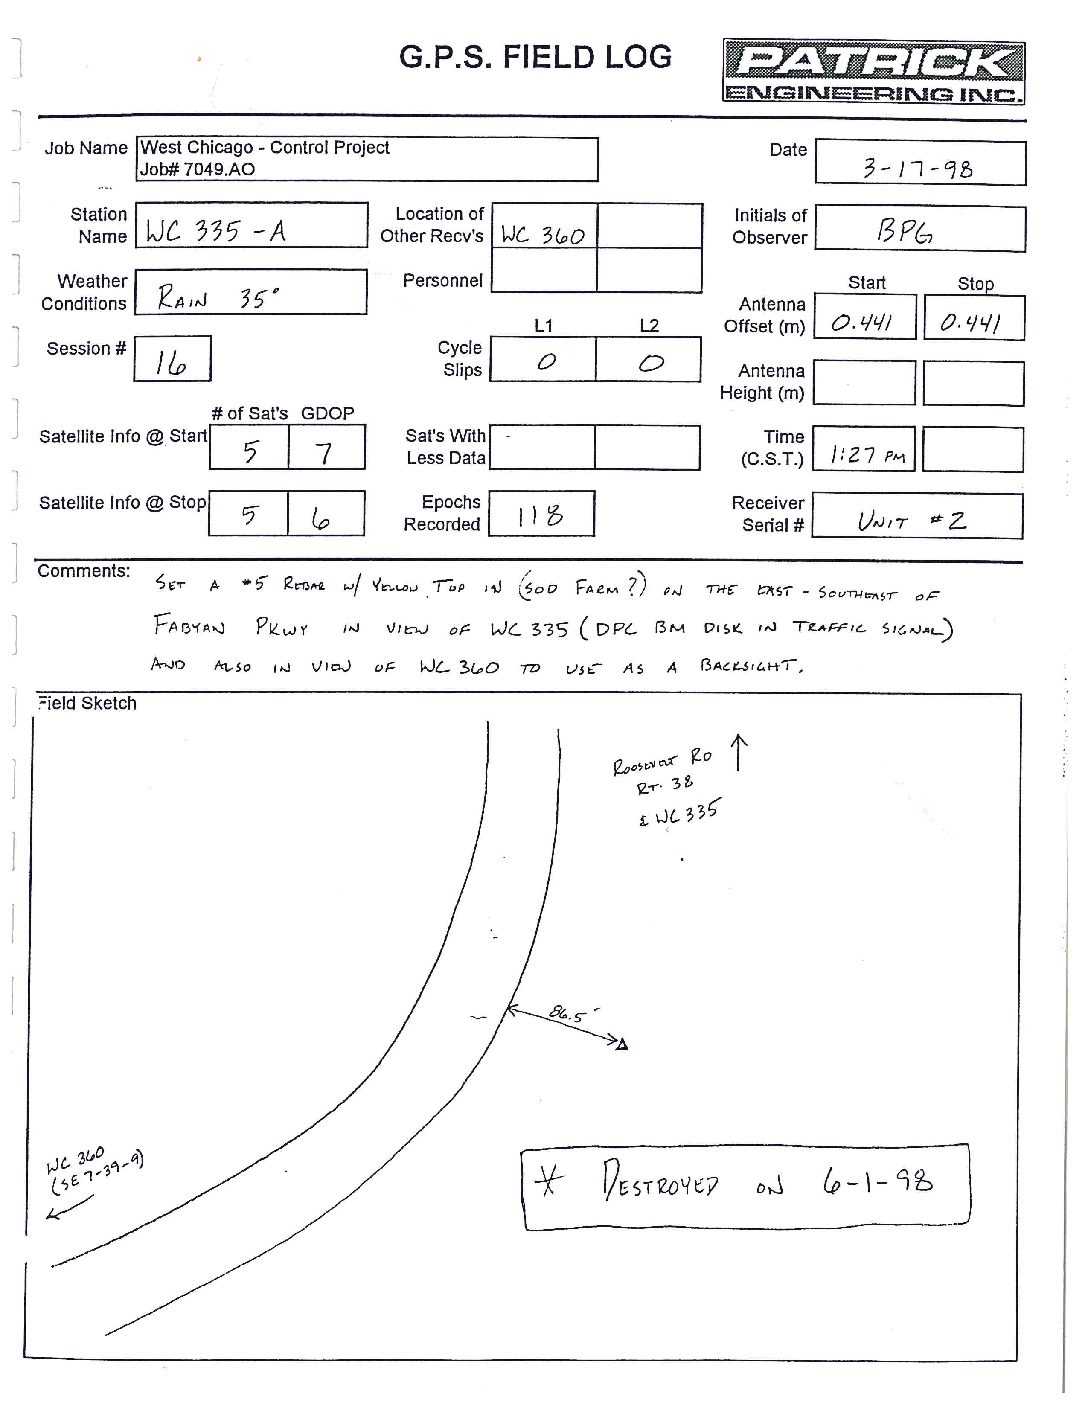 G.P.S. FIELD LOG
PATRICK
ENGINEERING INC.
Job Name West Chicago - Control Project
Job# 7049.AO
Date 3-17-98
Station Name WC 335-A
Location of Other Recv's WC 360
Initials of Observer BPG
Weather Conditions RAIN 35°
Personnel
Start Stop
Antenna Offset (m) 0.441 0.441
Session # 16
L1 L2
Cycle Slips 0 0
Antenna Height (m)
# of Sat's GDOP
Satellite Info @ Start 5 7
Sat's With Less Data -
Time (C.S.T.) 1:27 PM
Satellite Info @ Stop 5 6
Epochs Recorded 118
Receiver Serial # UNIT #2
Comments:
SET A #5 REBAR W/ YELLOW TOP IN (SOD FARM?) ON THE EAST - SOUTHEAST OF
FABYAN PKWY IN VIEW OF WC 335 (DPC BM DISK IN TRAFFIC SIGNAL)
AND ALSO IN VIEW OF WC 360 TO USE AS A BACKSIGHT.
Field Sketch
ROOSEVELT RD
RT. 38
& WC 335
86.5'
WC 360
(SE 7-39-9)
* DESTROYED ON 6-1-98